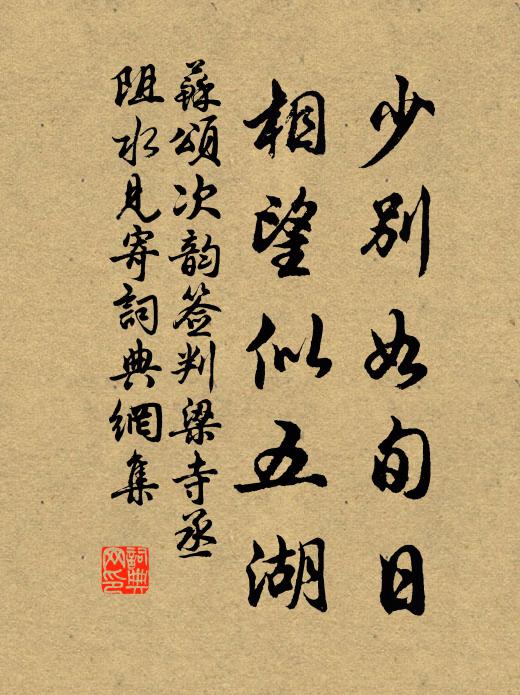 少別如旬日
相望似五湖
蘇頌次韵簽判梁寺丞
阻水見寄詞典網集
詞典
网印